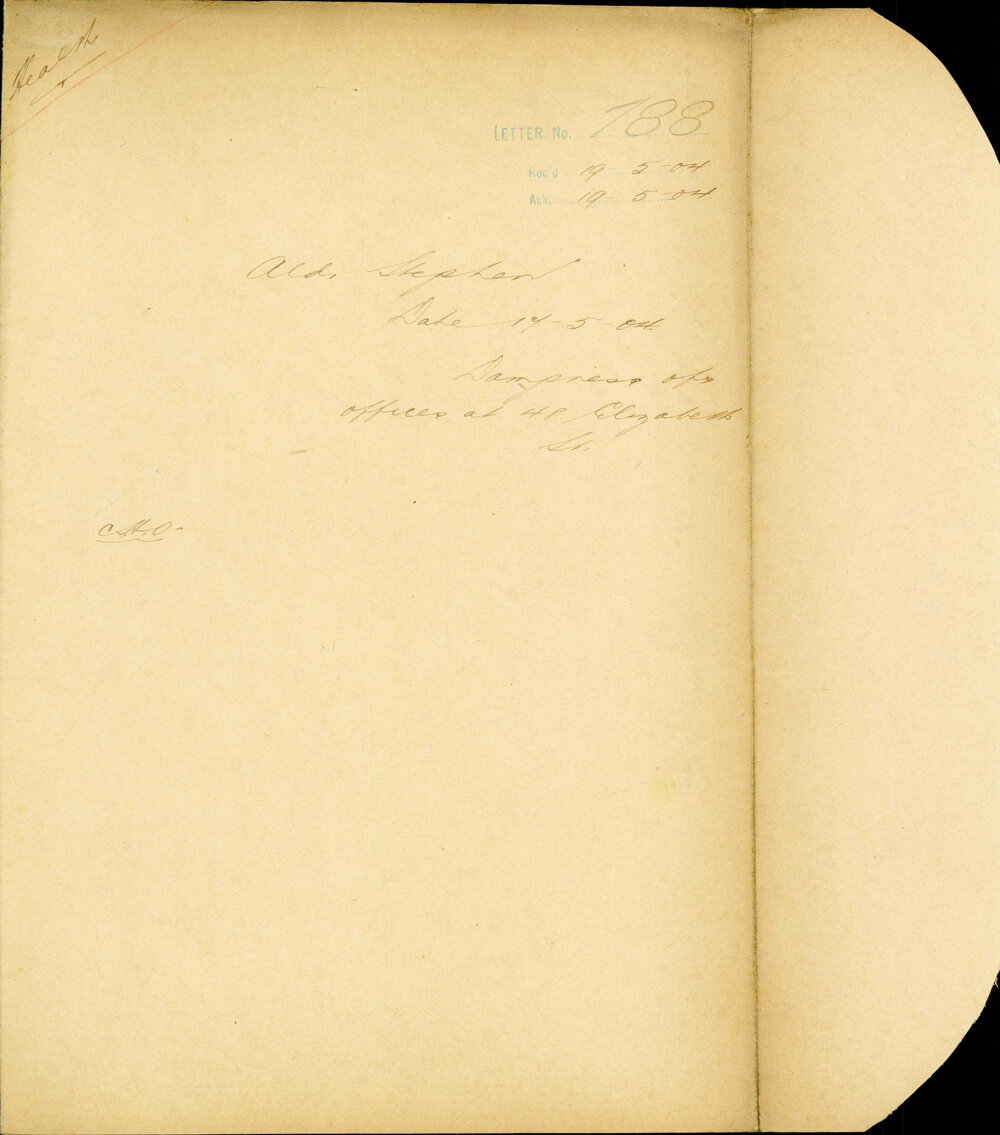 Health
LETTER No. 788
Rec'd 19-5-04
Ack. 19-5-04
Ald. Stephen
Date 17-5-04
Dampness of
offices at 48 Elizabeth
St.
C.H.O.